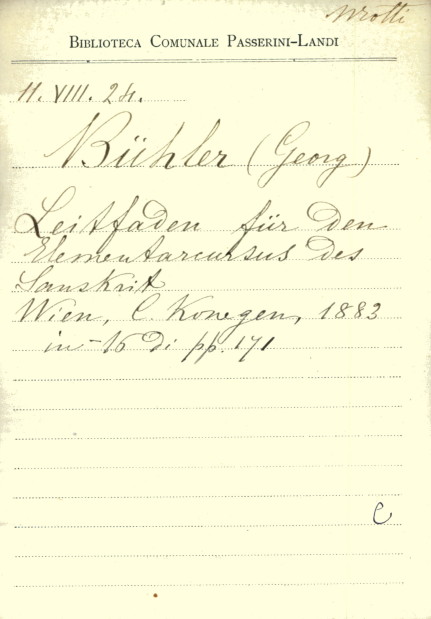 Mrotti
BIBLIOTECA COMUNALE PASSERINI-LANDI
11. VIII. 24.
Bühler (Georg)
Leitfaden für den
Elementarcursus des
Sanskrit
Wien, C. Konegen, 1883
in-16 di pp. 171
C